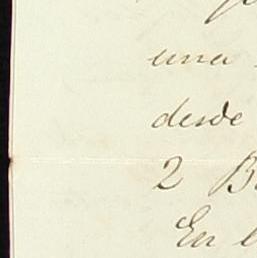 una
desde
2 B
En